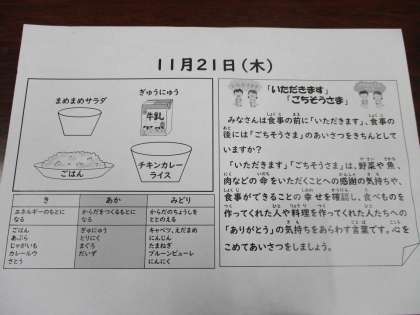 11月21日(木)
ぎゅうにゅう
まめまめサラダ
牛乳
ごはん
チキンカレー
ライス
き
あか
みどり
エネルギーのもとに
なる
からだをつくるもとになる
からだのちょうしを
ととのえる
ごはん
あぶら
じゃがいも
カレールウ
さとう
ぎゅうにゅう
とりにく
まぐろ
だいず
キャベツ、えだまめ
にんじん
たまねぎ
プルーンピューレ
にんにく
「いただきます」
「ごちそうさま」
みなさんは食事の前に「いただきます」、食事の
後には「ごちそうさま」のあいさつをきちんとして
いますか?
「いただきます」「ごちそうさま」は、野菜や魚、
肉などの命をいただくことへの感謝の気持ちや、
食事ができることの幸せを確認し、食べものを
作ってくれた人や料理を作ってくれた人たちへの
「ありがとう」の気持ちをあらわす言葉です。心を
こめてあいさつをしましょう。